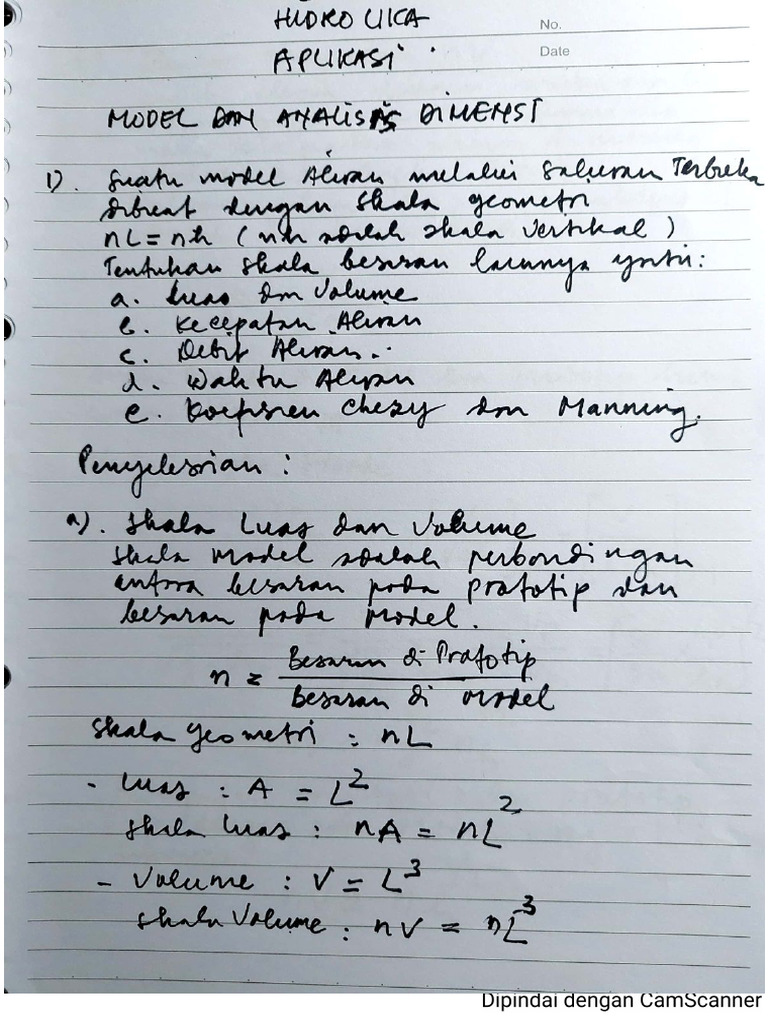 HIDROLIKA
No.
APLIKASI
Date
MODEL DAN ANALISIS DIMENSI
1). Suatu model Aliran melalui Saluran Terbuka
dibuat dengan Skala geometri
nL = nh (nh adalah skala vertikal)
Tentukan Skala besaran lainnya yaitu:
a. Luas dan Volume
b. Kecepatan Aliran
c. Debit Aliran.
d. Waktu Aliran
e. Koefisien Chezy dan Manning.
Penyelesaian :
a). Skala Luas dan Volume
Skala model adalah perbandingan
antara besaran pada prototip dan
besaran pada model.
n = Besaran di Prototip
Besaran di model
Skala geometri : nL
- Luas : A = L²
Skala Luas : nA = nL²
- Volume : V = L³
Skala Volume : nV = nL³
Dipindai dengan CamScanner